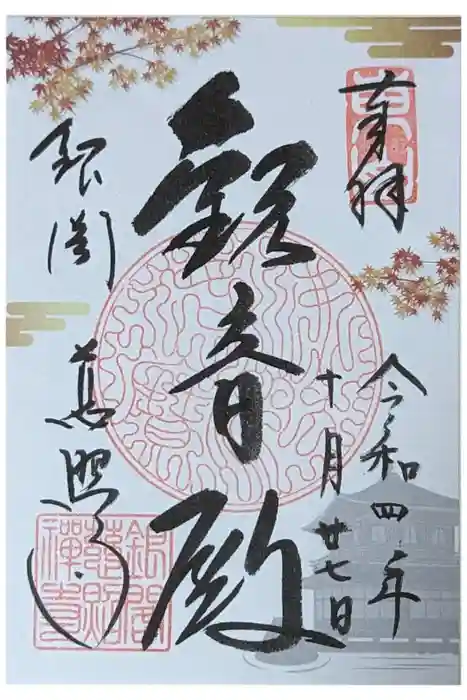 奉拝
令和四年
十月廿七日
観音殿
銀閣
慈照寺
銀閣慈照禅寺